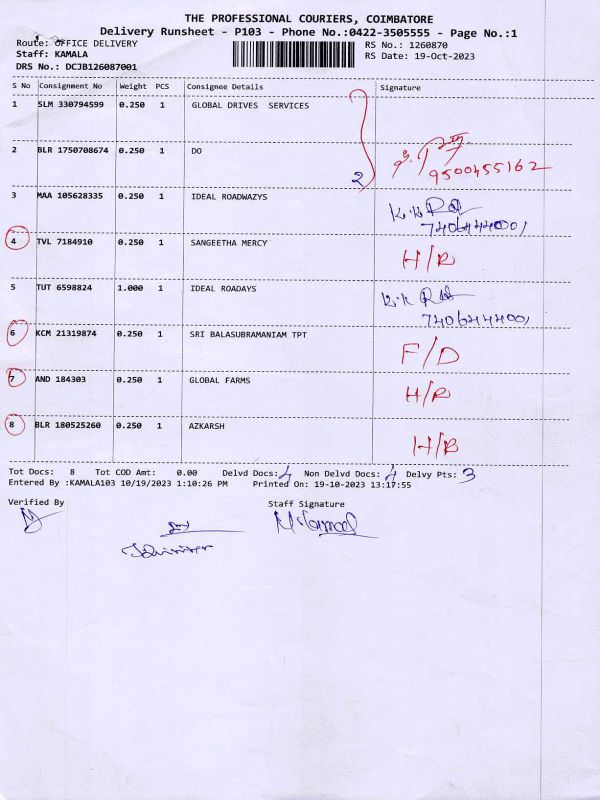 THE PROFESSIONAL COURIERS, COIMBATORE
Delivery Runsheet - P103 - Phone No.:0422-3505555 - Page No.:1
Route: OFFICE DELIVERY RS No.: 1260870
Staff: KAMALA RS Date: 19-Oct-2023
DRS No.: DCJB126087001
S No Consignment No Weight PCS Consignee Details Signature
1 SLM 330794599 0.250 1 GLOBAL DRIVES SERVICES
2 BLR 1750708674 0.250 1 DO 2
9500455162
3 MAA 105628335 0.250 1 IDEAL ROADWAZYS
7406444001
4 TVL 7184910 0.250 1 SANGEETHA MERCY H/R
5 TUT 6598824 1.000 1 IDEAL ROADAYS
7406444001
6 KCM 21319874 0.250 1 SRI BALASUBRAMANIAM TPT F/D
7 AND 184303 0.250 1 GLOBAL FARMS H/R
8 BLR 180525260 0.250 1 AZKARSH H/B
Tot Docs: 8 Tot COD Amt: 0.00 Delvd Docs: 4 Non Delvd Docs: 4 Delvy Pts: 3
Entered By :KAMALA103 10/19/2023 1:10:26 PM Printed On: 19-10-2023 13:17:55
Verified By Staff Signature